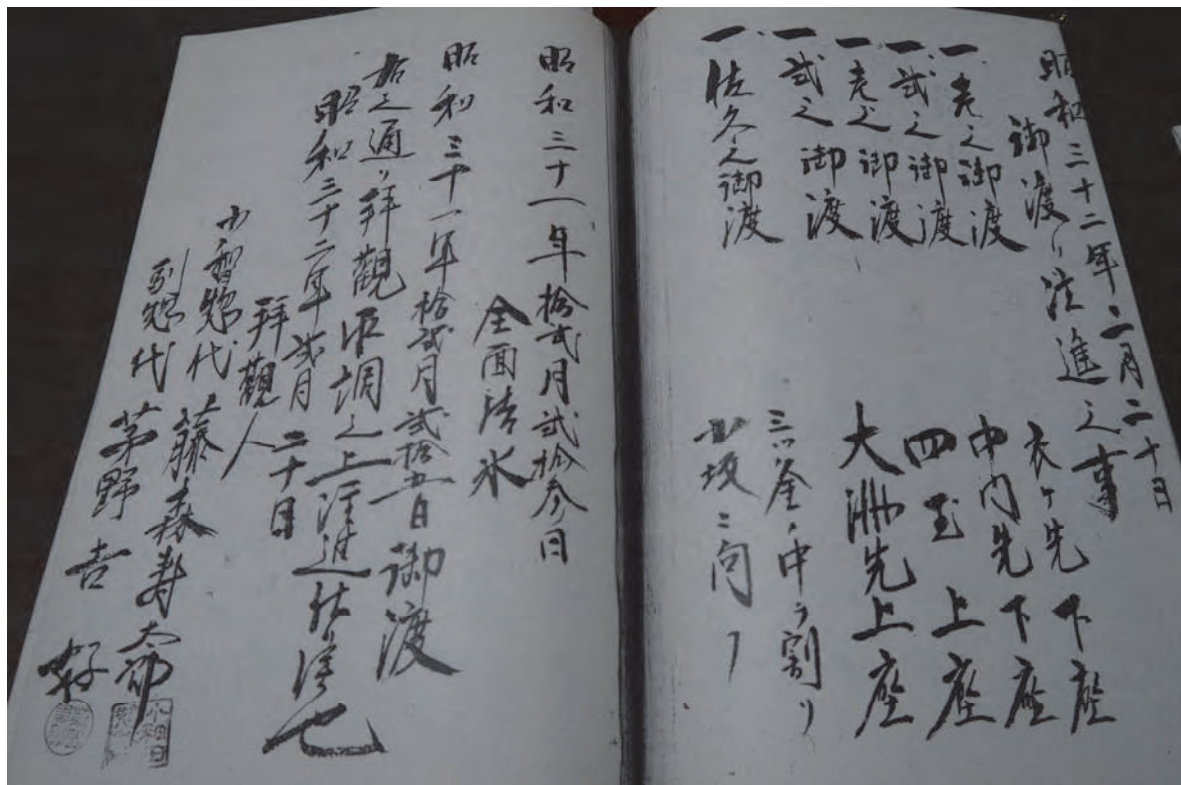 昭和三十二年二月二十日
御渡リ注進之事
一、壱之御渡 衣ヶ先 下座
一、弐之御渡 中内先 下座
一、壱之御渡 四玉 上座
一、弐之御渡 大洲先 上座
一、佐久之御渡 三ツ釜ノ中ヲ割リ
坂ニ向フ
昭和三十一年拾弐月弐拾参日
全面結氷
昭和三十一年拾弐月弐拾五日御渡
右之通リ拝觀取調之上注進仕候也
昭和三十二年弐月二十日
拝觀人
惣代 藤森寿太郎
副惣代 茅野吉好
小和田